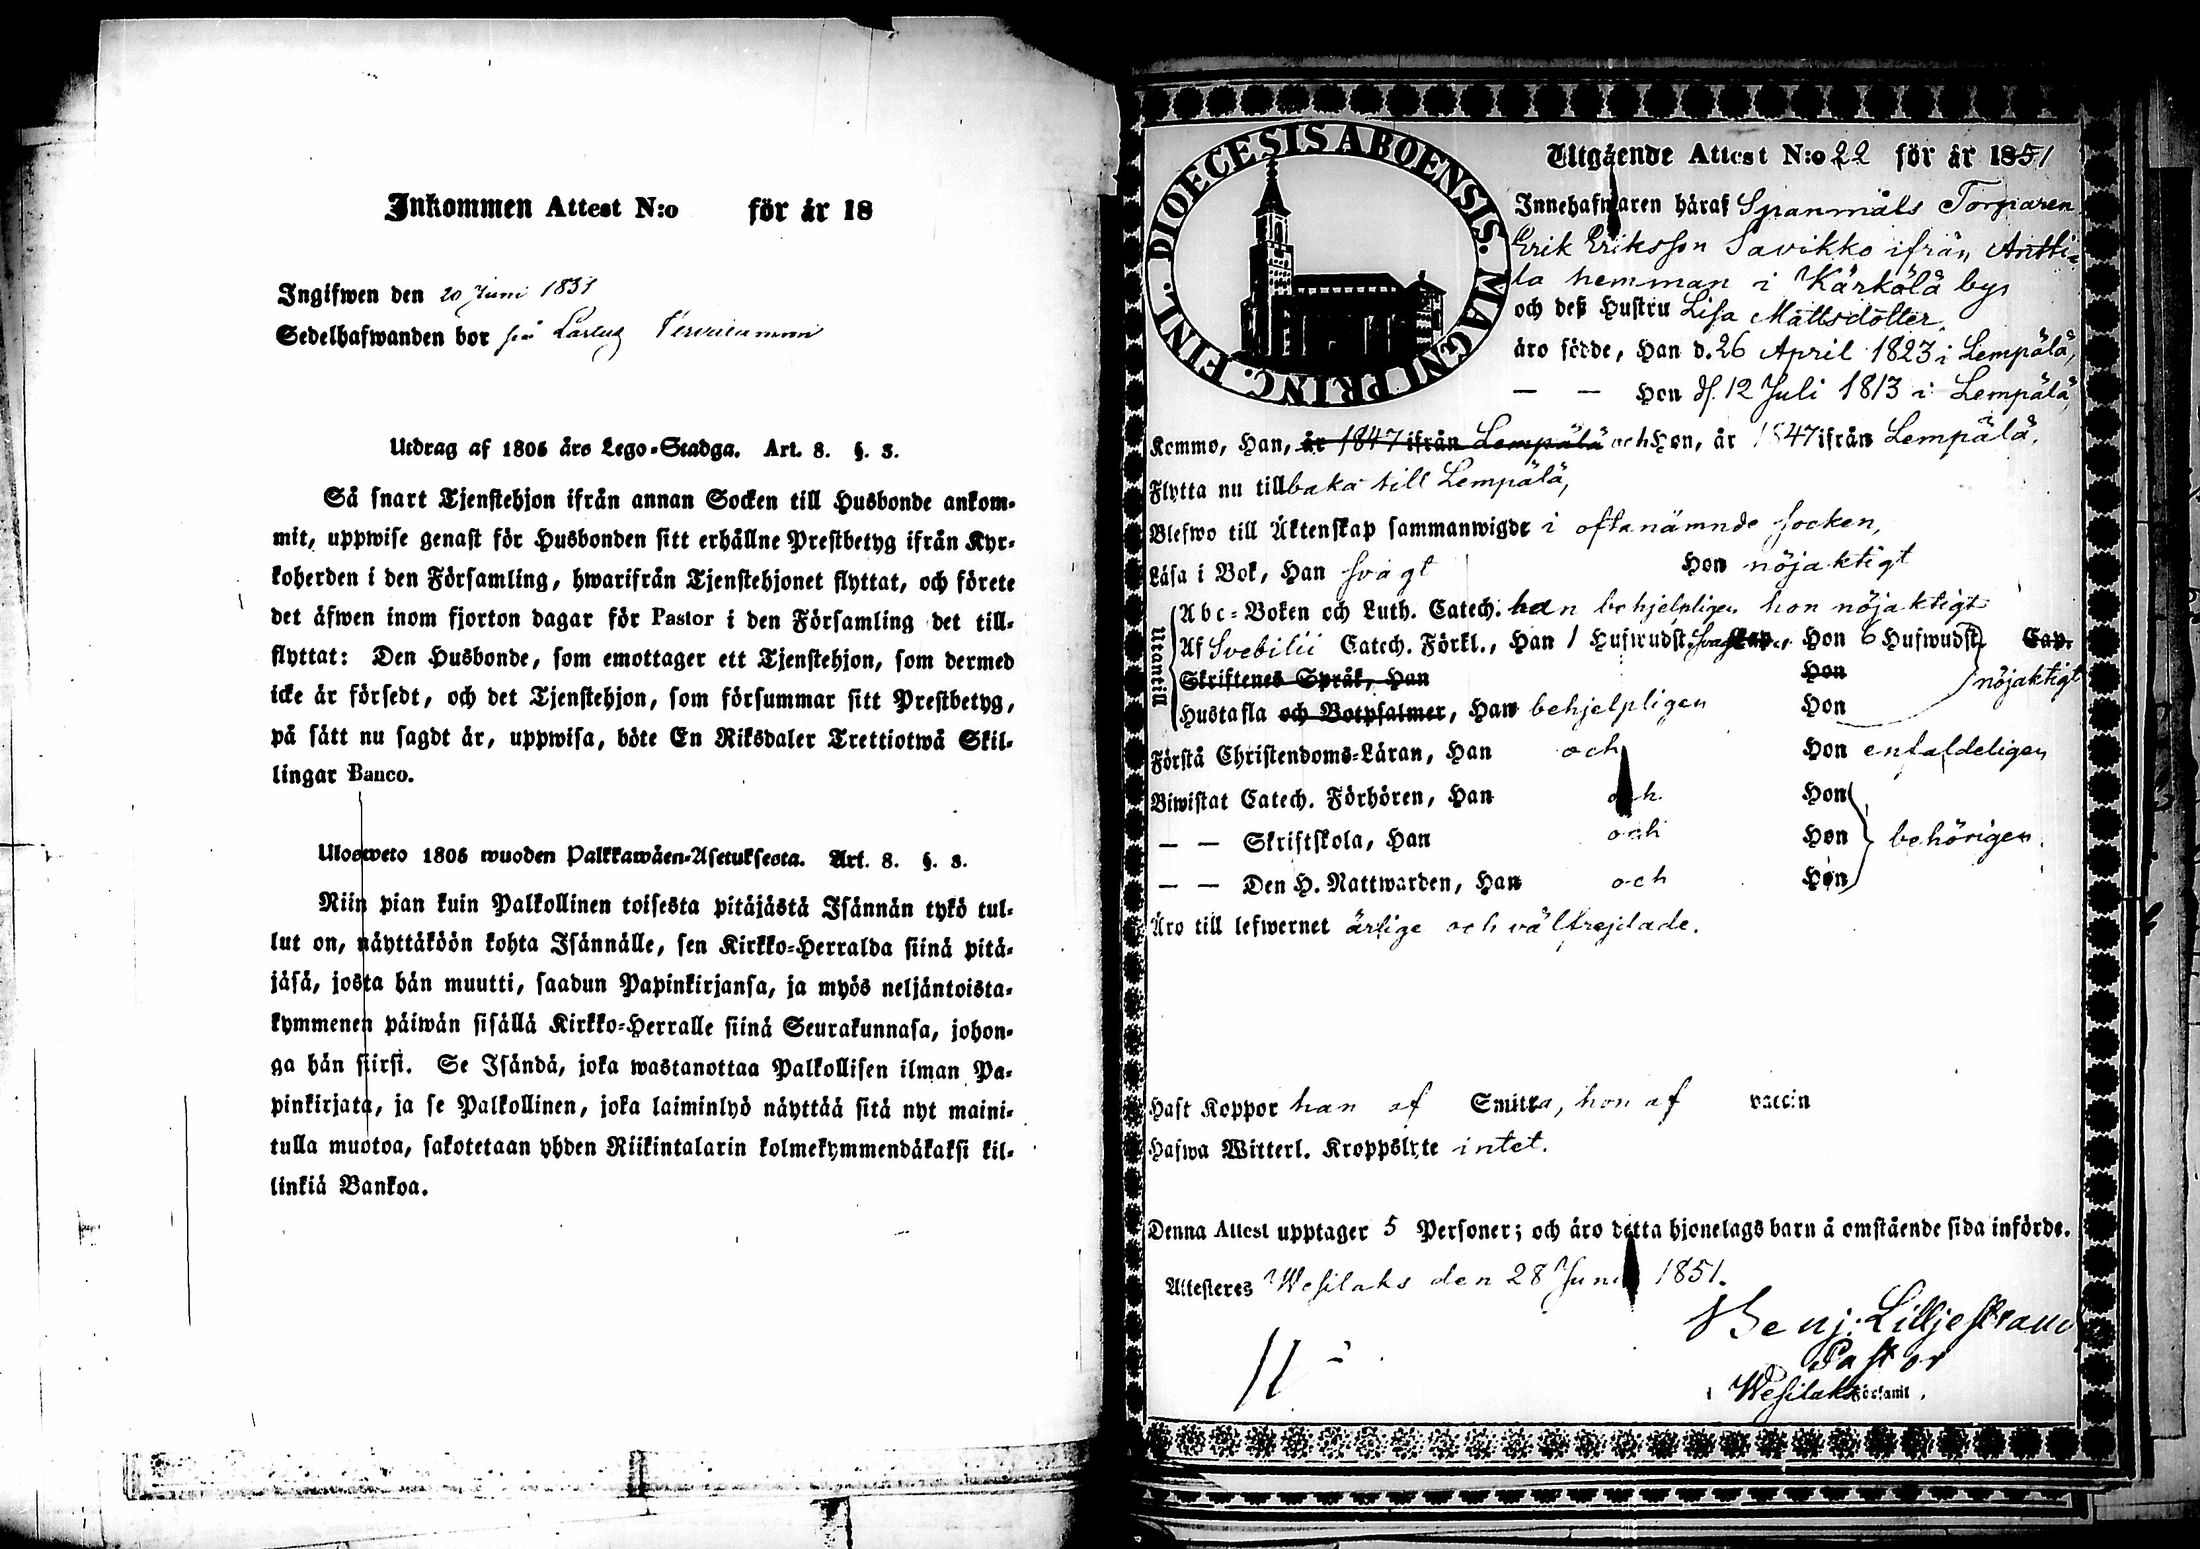 Inkommen Attest N:o för år 18
Ingifwen den 20 Juni 1831
Sedelhafwanden bor på
Utdrag af 1805 års Lego-Stadga. Art. 8. §. 3.
Så snart Tjenstehjon ifrån annan Socken till Husbonde ankom-
mit, uppwise genast för Husbonden sitt erhållne Prestbetyg ifrån Kyr-
koherden i den Församling, hwarifrån Tjenstehjonet flyttat, och förete
det äfwen inom fjorton dagar för Pastor i den Församling det till-
flyttat: Den Husbonde, som emottager ett Tjenstehjon, som dermed
icke är försedt, och det Tjenstehjon, som försummar sitt Prestbetyg,
på sätt nu sagdt är, uppwisa, böte En Riksdaler Trettiotwå Skil-
lingar Banco.
Ulosweto 1805 wuoden Palkkawäen-Asetuksesta. Art. 8. §. 3.
Niin pian kuin Palkollinen toisesta pitäjästä Isännän tykö tul-
lut on, näyttäköön kohta Isännälle, sen Kirkko-Herralda siinä pitä-
jäsä, josta hän muutti, saadun Papinkirjansa, ja myös neljäntoista-
kymmenen päiwän sisällä Kirkko-Herralle siinä Seurakunnasa, johon-
ga hän siirsi. Se Isändä, joka wastanottaa Palkollisen ilman Pa-
pinkirjata, ja se Palkollinen, joka laiminlyö näyttää sitä nyt maini-
tulla muotoa, sakotetaan yhden Riikintalarin kolmekymmendäkaksi kil-
linkiä Bankoa.
DIOECESIS ABOENSIS. MAGNI PRINC. FINL.
Utgående Attest N:o 22 för år 1851
Innehafwaren häraf Spanmåls Torparen
Erik Eriksson Savikko ifrån Antti-
la hemman i Kärkölä by
och deß Hustru Lisa Mattsdotter,
äro födde, Han d. 26 April 1823 i Lempälä,
— — Hon d. 12 Juli 1813 i Lempälä,
Kommo, Han, år 1847 ifrån Lempälä och Hon, år 1847 ifrån Lempälä,
Flytta nu tillbaka till Lempälä,
Blefwo till Äktenskap sammanwigde i oftanämnde socken,
Läsa i Bok, Han svagt Hon nöjaktigt
Utantill
Abc-Boken och Luth. Catech. han behjelpligen hon nöjaktigt
Af Svebilii Catech. Förkl., Han 1 Hufwudst. Cap. Hon 6 Hufwudst. Cap.
Skriftenes Språk, Han Hon nöjaktigt
Hustafla och Botpsalmer, Han behjelpligen Hon
Förstå Christendoms-Läran, Han och Hon enfaldeligen
Biwistat Catech. Förhören, Han och Hon
— — Skriftskola, Han och Hon behörigen.
— — Den H. Nattwarden, Han och Hon
Äro till lefwernet ärlige och välfrejdade.
Haft Koppor han af Smitta, hon af vaccin
Hafwa Witterl. Kroppslyte intet.
Denna Attest upptager 5 Personer; och äro detta hjonelags barn å omstående sida införde.
Attesteres Wesilaks den 28 Juni 1851.
Benj. Lilljestrand
Pastor
i Wesilaks Församl.